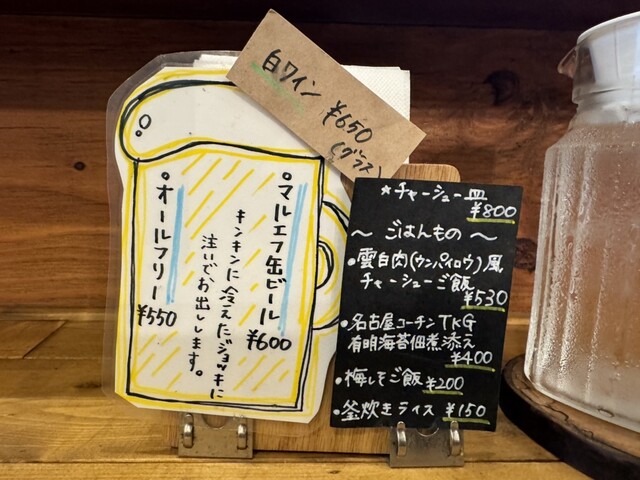 白ワイン ¥650
(グラス)
・マルエフ缶ビール
¥600
キンキンに冷えたジョッキに
注いでお出しします。
・オールフリー
¥550
★チャーシュー皿
¥800
〜ごはんもの〜
・雲白肉(ウンパイロウ)風
チャーシューご飯
¥530
・名古屋コーチンTKG
有明海苔佃煮添え
¥400
・梅しそご飯 ¥200
・釜炊きライス ¥150